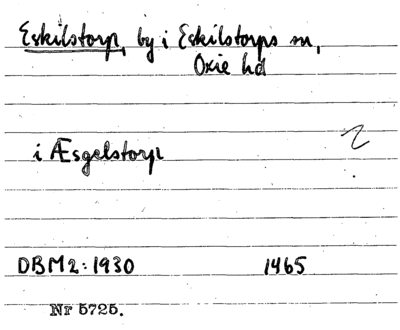 Eskilstorp, by i Eskilstorps sn,
Oxie hd
i Æsgelstorp
DBM2:1930 1465
Nr 5725.